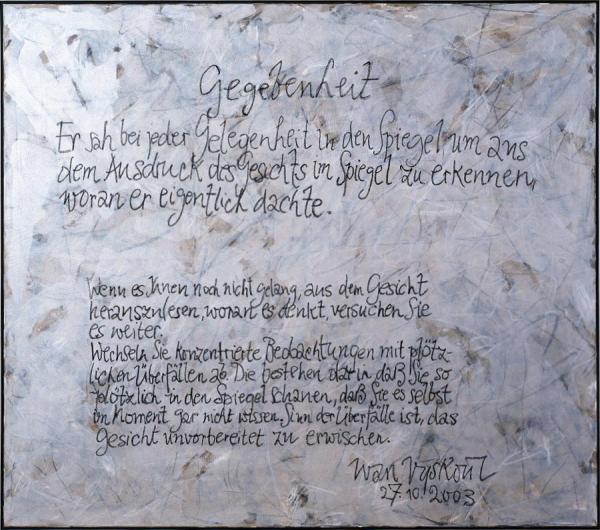 Gegebenheit
Er sah bei jeder Gelegenheit in den Spiegel um aus
dem Ausdruck des Gesichts im Spiegel zu erkennen,
woran er eigentlich dachte.
Wenn es Ihnen noch nicht gelang, aus dem Gesicht
herauszulesen, woran es denkt, versuchen Sie
es weiter.
Wechseln Sie konzentrierte Beobachtungen mit plötz-
lichen Überfällen ab. Die bestehen darin daß Sie so
plötzlich in den Spiegel schauen, daß Sie es selbst
im Moment gar nicht wissen. Sinn der Überfälle ist, das
Gesicht unvorbereitet zu erwischen.
Ivan Vyskočil
27.10.2003